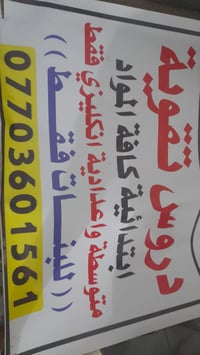 دروس تقوية
ابتدائية كافة المواد
متوسطة واعدادية انكليزي فقط
((للبنات فقط))
07703601561